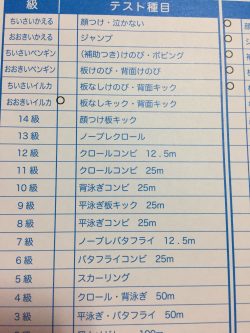 級 テスト種目
ちいさいかえる 顔つけ・泣かない
おおきいかえる ジャンプ
ちいさいペンギン (補助つき)けのび・ボビング
おおきいペンギン 板けのび・背面けのび
ちいさいイルカ 板なしけのび・背面キック
おおきいイルカ 板なしキック・背面キック
14級 顔つけ板キック
13級 ノーブレクロール
12級 クロールコンビ 12.5m
11級 クロールコンビ 25m
10級 背泳ぎコンビ 25m
9級 平泳ぎ板キック 25m
8級 平泳ぎコンビ 25m
7級 ノーブレバタフライ 12.5m
6級 バタフライコンビ 25m
5級 スカーリング
4級 クロール・背泳ぎ 50m
3級 平泳ぎ・バタフライ 50m
100m